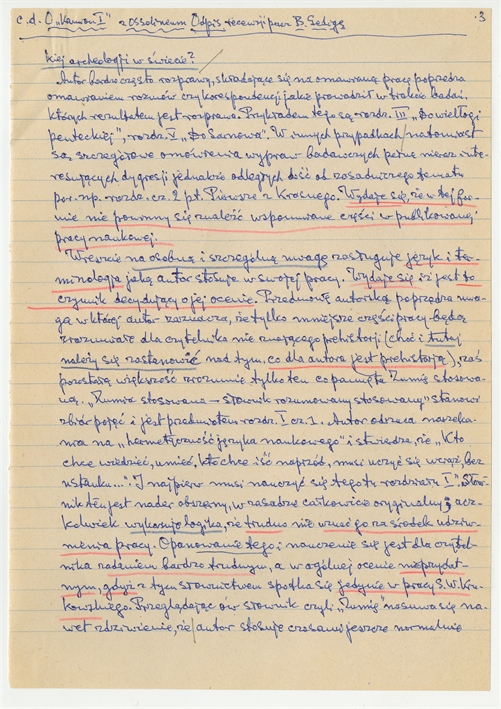 c.d. O „Kamon I" z Ossolineum Odpis recenzji prac B. Gediga 3
kiej archeologji w świecie?
Autor bardzo często rozprawy, składające się na omawianą pracę poprzedza
omawianiem rozmów czy korespondencji jakie prowadził w trakcie badań,
których rezultatem jest rozprawa. Przykładem tego są rozdz. III „Do wielkogi
penteckiej", rozdz. V „Do Sanowa". W innych przypadkach natomiast
są szczegółowe omówienia wypraw badawczych pełne nieraz inte-
resujących dygresji jednakże odległych dość od zasadniczego tematu
por. np. rozdz. cz. 2 pt. Pierwsze z Krasnego. Wydaje się, że w tej for-
mie nie powinny się znaleźć wspomniane części w publikowanej
pracy naukowej.
Wreszcie na osobną i szczególną uwagę zasługuje język i ter-
minologja jaką autor stosuje w swojej pracy. Wydaje się iż jest to
czynnik decydujący o jej ocenie. Przedmowę autorską poprzedza uwa-
ga w której autor zaznacza, że tylko mniejsze części pracy będą
zrozumiałe dla czytelnika nie znającego prehistorji (choć i tutaj
należy się zastanowić nad tym, co dla autora jest prehistorją), zaś
pozostałą większość zrozumie tylko ten co pamięta Zumię stosowa-
ną. „Zumia stosowana – słownik rozumowany stosowany" stanowi
zbiór pojęć i jest przedmiotem rozdz. I cz. 1. Autor odrzuca narzeka-
nia na „hermetyczność języka naukowego" i stwierdza, że „Kto
chce wiedzieć, umieć, kto chce iść naprzód, musi uczyć się wciąż, bez
ustanku...: I najpierw musi nauczyć się tego tu rozdziału I". Słow-
nik ten jest nader obszerny, w zasadzie całkowicie oryginalny, acz-
kolwiek wykonuje logika, że trudno nie uznać go za środek udziw-
nienia pracy. Opanowanie tego i nauczenie się jest dla czytel-
nika zadaniem bardzo trudnym, a w ogólnej ocenie nieprzydat-
nym, gdyż z tym słownictwem spotka się jedynie w pracy S. W. Kru-
kowskiego. Przeglądając ów słownik czyli „Zumię" nasuwa się na-
wet zdziwienie, że autor stosuje czasami jeszcze normalnie